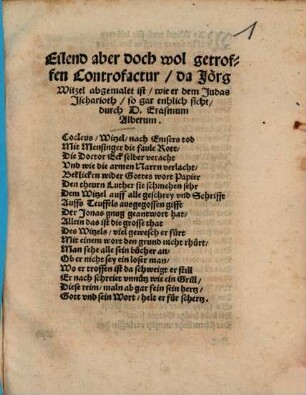 1
Eilend aber doch wol getrof-
fen Controfactur / da Jörg
Witzel abgemalet ist / wie er dem Judas
Ischarioth / so gar enhlich sicht /
durch D. Erasmum
Alberum.
Cocleus / Witzel / nach Emsers tod
Mit Mensinger die faule Rott /
Die Doctor Eck selber veracht
Vnd wie die armen Narrn verlacht /
Beklicken wider Gottes wort Papier
Den thewrn Luther sie schmehen sehr
Dem Witzel auff alle geschrey vnd Schrifft
Auffs Teuffels ausgegossen gifft
Der Jonas gnug geantwort hat /
Allein das ist die grosse that
Des Witzels / viel gewesch er fürt
Mit einem wort den grund nicht rhürt /
Man sehe all sein bücher an /
Ob er nicht sey ein loser man /
Wo er troffen ist da schweigt er still
Er nach schreiet vnnütz wie ein Grill /
Diese reim / maln ab gar fein sein hertz /
Gott vnd sein Wort / helt er für schertz.